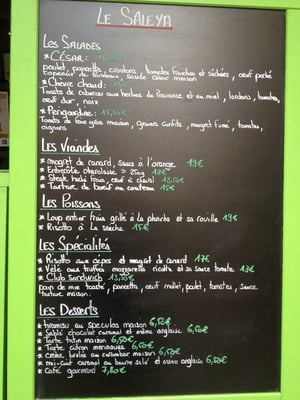 Le Saleya
Les Salades
* César: 
poulet, pancetta, croutons, tomates fraîches et séchées, œuf poché
copeaux de parmesan, sauce césar maison
* Chèvre chaud:
Toasts de cabecou aux herbes de Provence et au miel, lardons, tomates,
œuf dur, noix
* Périgourdine: 15,50€
Toasts de foie gras maison, gésiers confits, magret fumé, tomates,
oignons
Les Viandes
* magret de canard, sauce à l'orange 19€
* Entrecôte charolaise 250g 18€
* Steak haché frais, œuf à cheval 12,50€
* Tartare de bœuf au couteau 15€
Les Poissons
* Loup entier frais grillé à la plancha et sa rouille 19€
* Risotto à la seiche 15€
Les Spécialités
* Risotto aux cèpes et magret de canard 17€
* mozzarella ricotta et sa sauce tomate 13€
* Club Sandwich 13,50€
pain de mie toasté, pancetta, œuf mollet, poulet, tomates, sauce
tartare maison.
Les Desserts
* tiramisu au speculos maison 6,50€
* Sablé chocolat caramel et crème anglaise 6,50€
* Tarte tatin maison 6,50€
* Tarte citron meringuée 6,50€
* crème brûlée au carambar maison 6,50€
* mi-cuit caramel au beurre salé et crème anglaise 6,50€
* Café gourmand 7,80€